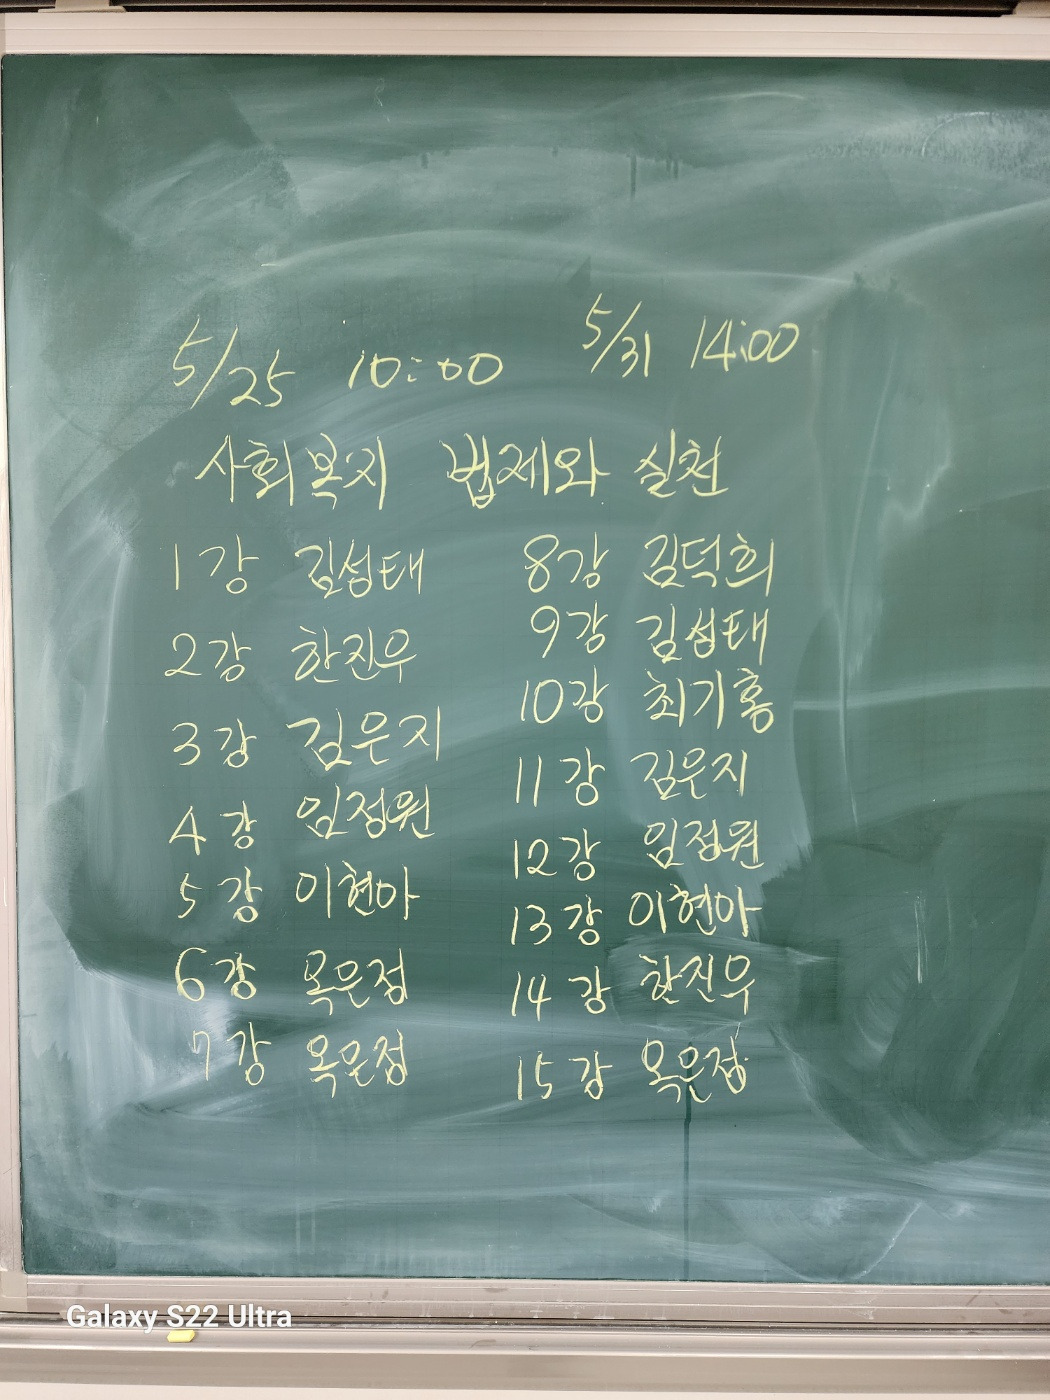 5/25 10:00 5/31 14:00
사회복지 법제와 실천
1강 김성태
2강 한진우
3강 김은지
4강 임정원
5강 이현아
6강 옥은정
7강 옥은정
8강 김덕희
9강 김성태
10강 최기홍
11강 김은지
12강 임정원
13강 이현아
14강 한진우
15강 옥은정
Galaxy S22 Ultra